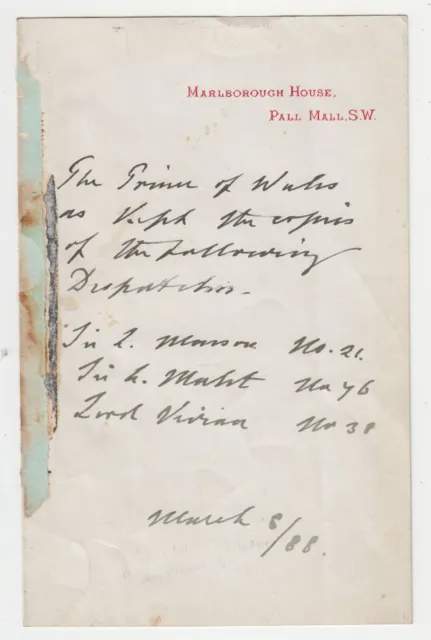 MARLBOROUGH HOUSE,
PALL MALL. S.W.
The Prince of Wales
as kept the copies
of the following
Despatches.
Sir E. Monson No. 21.
Sir E. Malet No 46
Lord Vivian No 38
March 8/88.